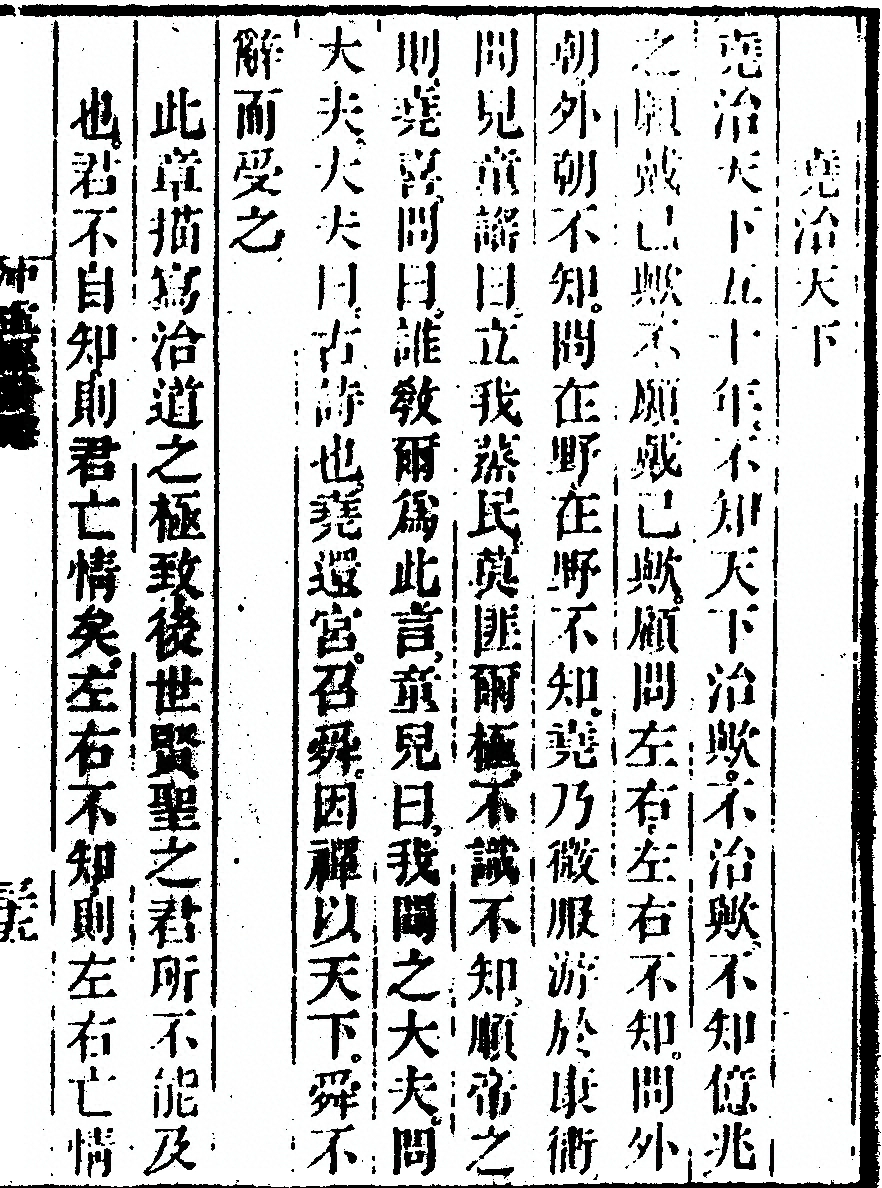 堯治天下
堯治天下五十年、不知天下治歟。不治歟、不知億兆
之願戴已歟、不願戴已歟。顧問左右、左右不知。問外
朝、外朝不知。問在野、在野不知。堯乃微服游於康衢
聞兒童謠曰、立我蒸民、莫匪爾極。不識不知、順帝之
則、堯喜問曰。誰敎爾爲此言、童兒曰、我聞之大夫。問
大夫、大夫曰。古詩也、堯還宮。召舜。因禪以天下。舜不
辭而受之
此章描寫治道之極致後世賢聖之君所不能及
也。君不自知則君亡情矣。左右不知則左右亡情